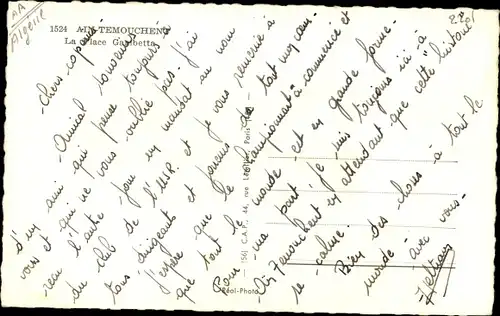 AA
Algérie
1524 AIN-TEMOUCHENT
La Place Gambetta
22F
-Chers copains-
-Amical souvenir
d'un ami qui pense toujours à
vous et qui ne vous oublie pas- j'ai
reçu l'autre jour un mandat au nom
du club de l'U.S.P. et je vous remercie à
tous dirigeants et joueurs de tout mon cœur-
j'espère que le championnat à commencé et
que tout le monde est en grande forme-
Pour ma part je suis toujours ici à
Aïn Temouchent en attendant que cette histoire
se calme. Bien des choses à tout le
monde avec vous-
(56) C.A.P., 44, rue Paris
Réal-Photo